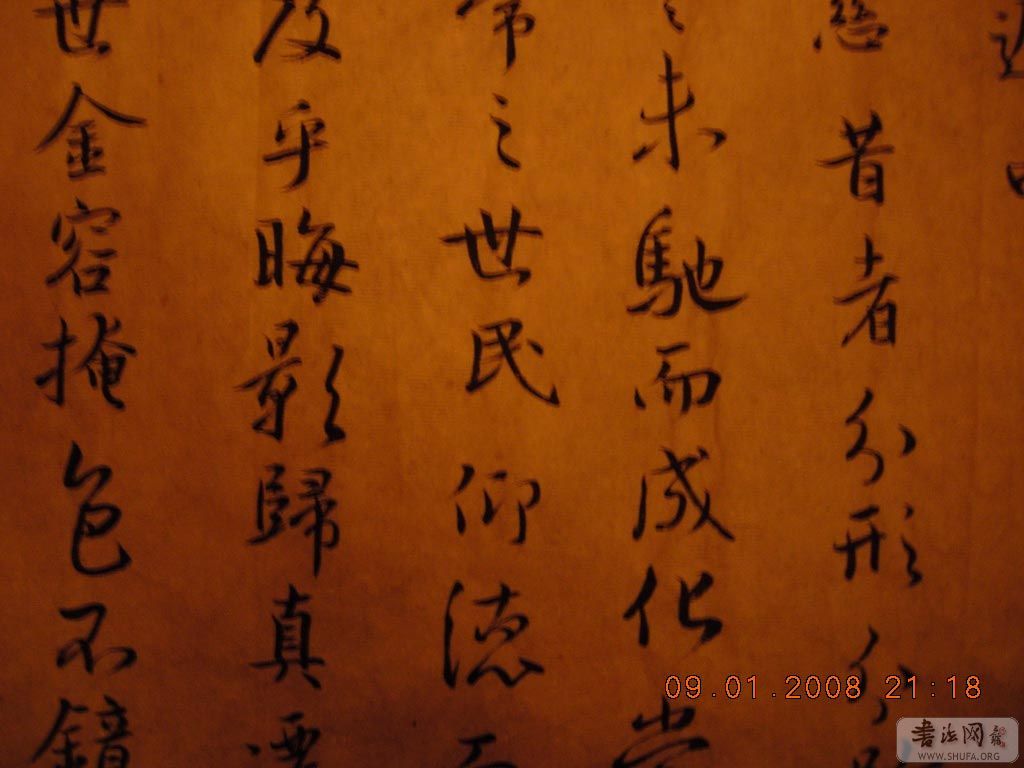 慈昔者分形分
未馳而成化當
常之世民仰德
及乎晦影歸真
世金容掩色不鏡
09.01.2008 21:18
書法网
WWW.SHUFA.ORG